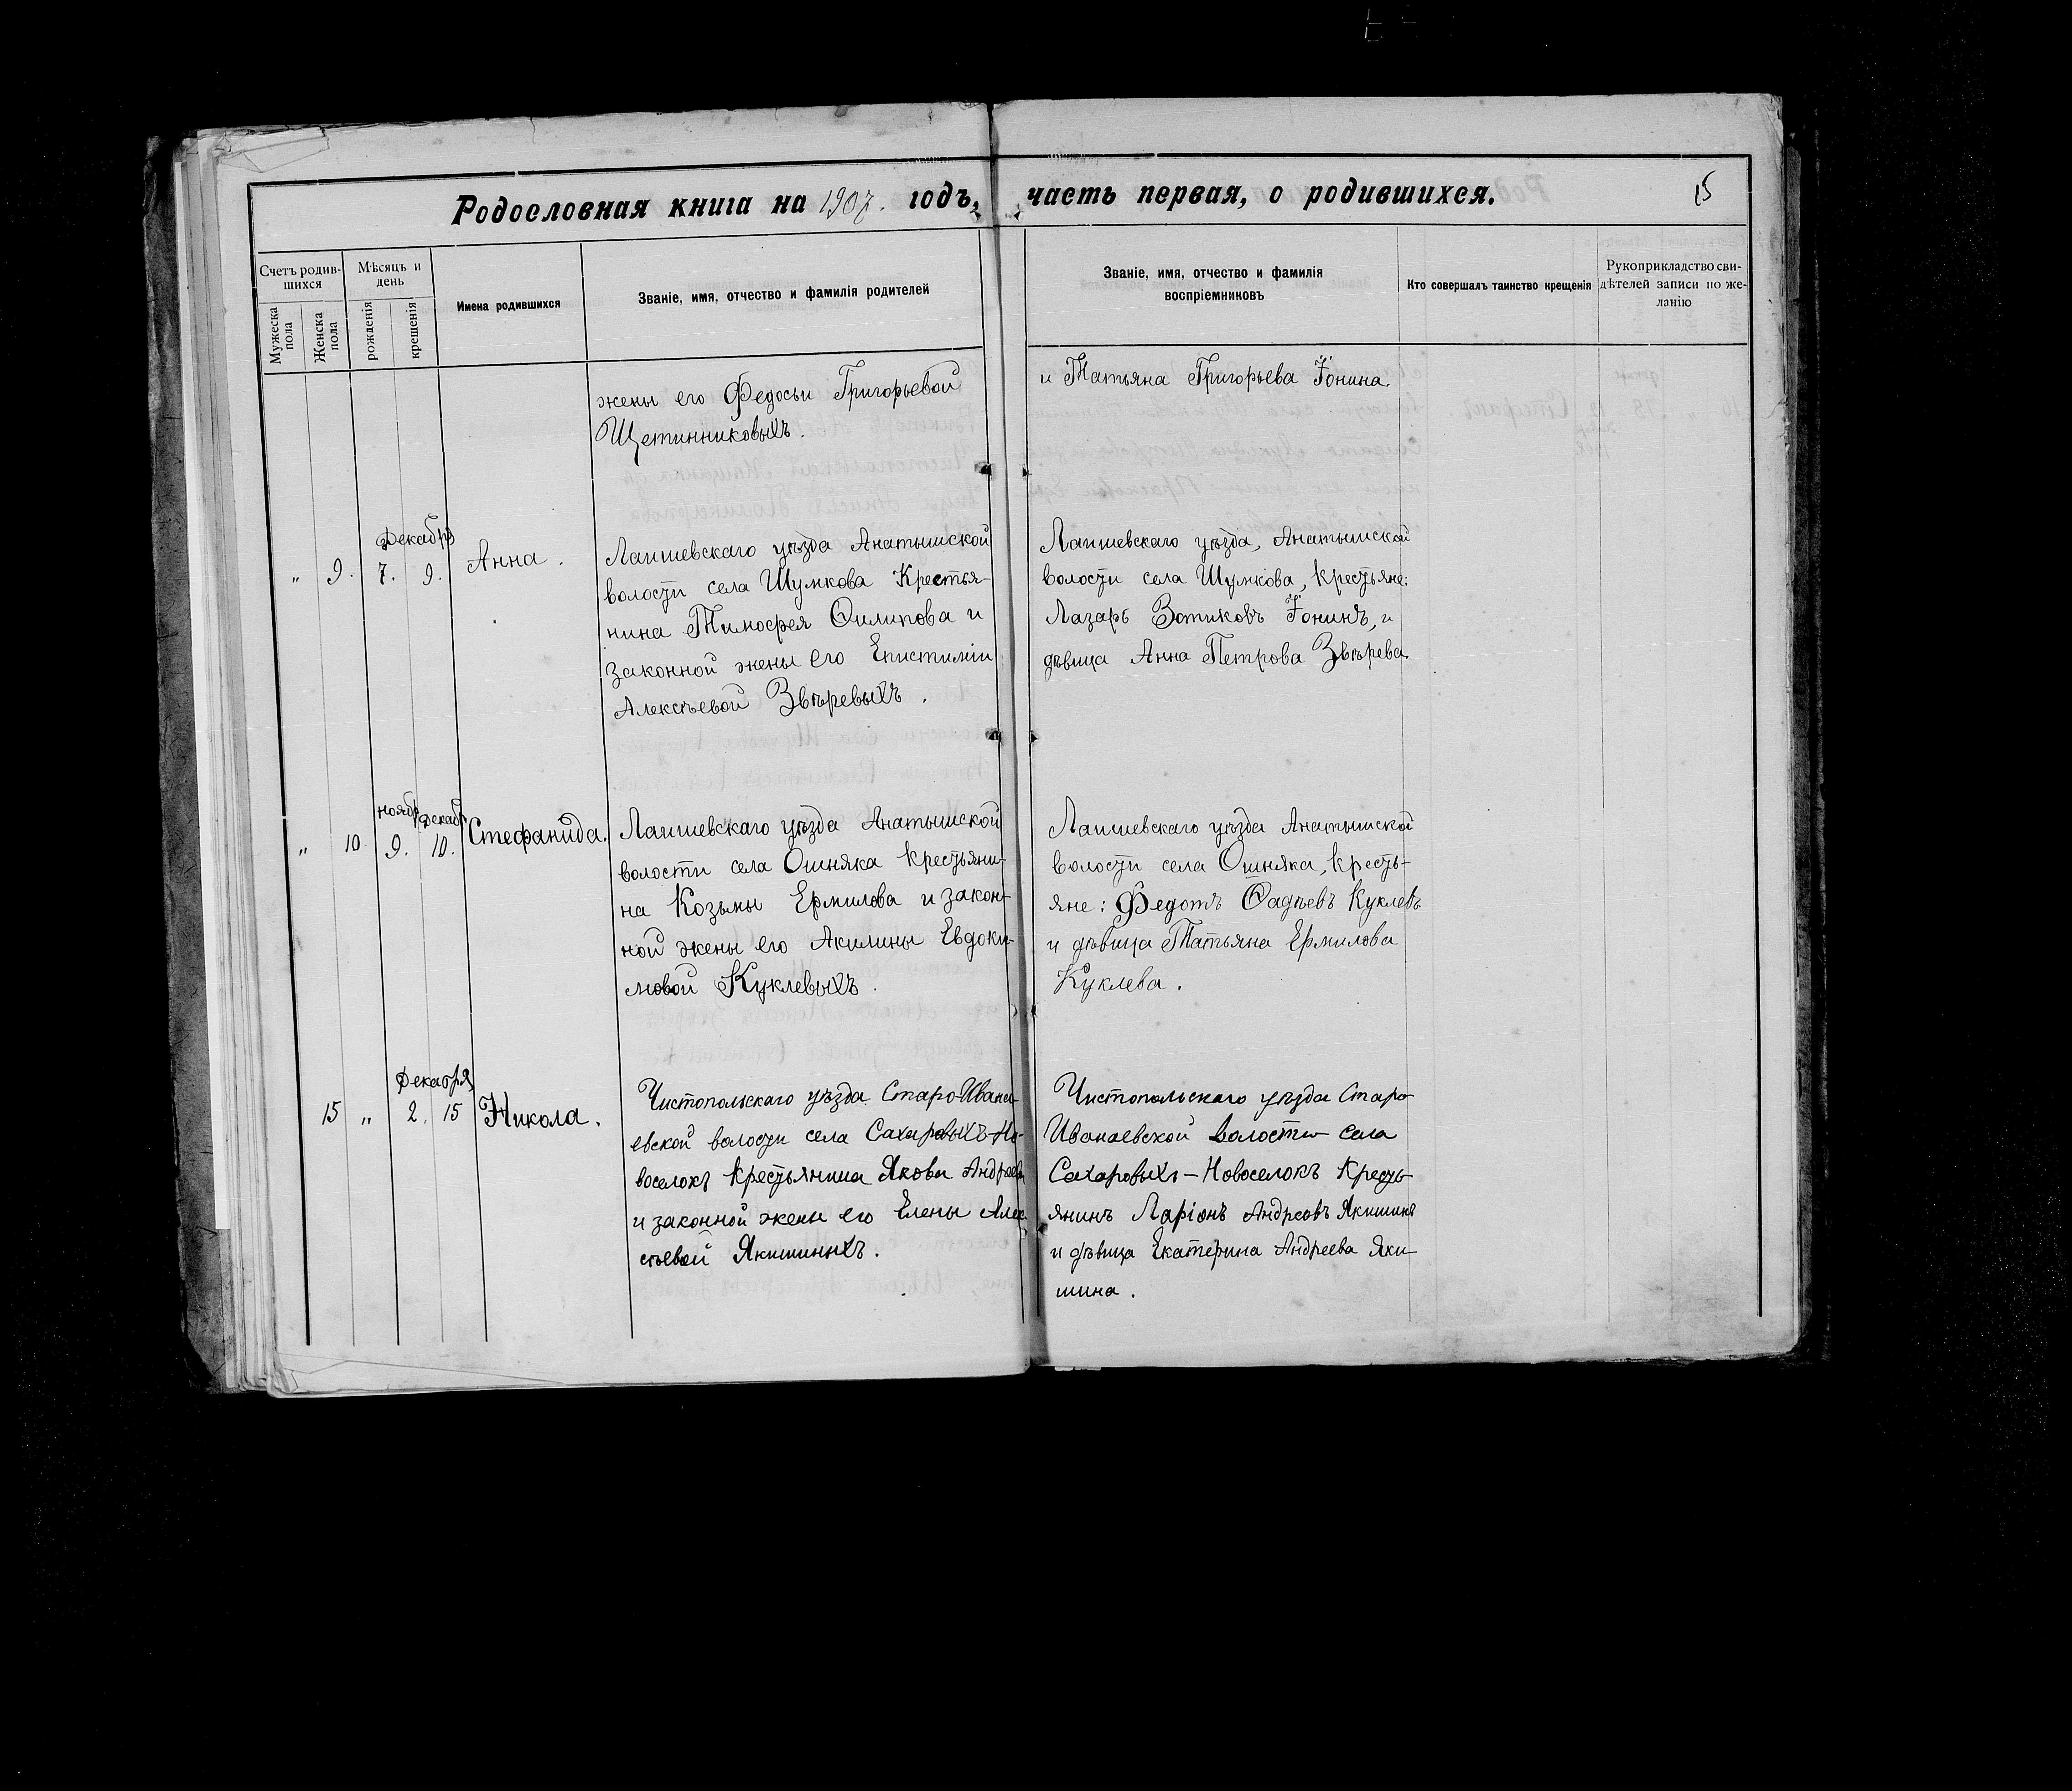 Родословная книга на 1907. годъ, часть первая, о родившихся.
15
Счетъ родив-
шихся
Мужеска
пола
Женска
пола
Мѣсяцъ и
день
рожденія
крещенія
Имена родившихся
Званіе, имя, отчество и фамилія родителей
Званіе, имя, отчество и фамилія
воспріемниковъ
Кто совершалъ таинство крещенія
Рукоприкладство сви-
дѣтелей записи по же-
ланію
жены его Федосьи Григорьевой
Щетинниковыхъ.
и Татьяна Григорьева Іонина.
Декабря
" 9. 7. 9. Анна.
Лаишевскаго уѣзда Анатышской
волости села Шумкова Крестья-
нина Тимофея Филипова и
законной жены его Епистиміи
Алексѣевой Звѣревыхъ.
Лаишевскаго уѣзда, Анатышской
волости села Шумкова, крестьяне:
Лазарь Зотиковъ Іонинъ, и
дѣвица Анна Петрова Звѣрева.
нояб. декаб.
" 10. 9. 10. Стефанида.
Лаишевскаго уѣзда Анатышской
волости села Ошняка крестьяни-
на Козьмы Ермилова и закон-
ной жены его Акилины Евдоки-
мовой Куклевыхъ.
Лаишевскаго уѣзда Анатышской
волости села Ошняка, кресть-
яне: Федотъ Фадѣевъ Куклевъ
и дѣвица Татьяна Ермилова
Куклева.
Декабря
15 " 2. 15 Никола.
Чистопольскаго уѣзда Старо-Ивана-
евской волости села Сахаровыхъ-Но-
воселокъ крестьянина Якова Андреева
и законной жены его Елены Алек-
сѣевой Якишиныхъ.
Чистопольскаго уѣзда Старо
Иванаевской волости села
Сахаровыхъ-Новоселокъ кресть-
янинъ Ларіонъ Андреевъ Якишинъ
и дѣвица Екатерина Андреева Яки-
шина.